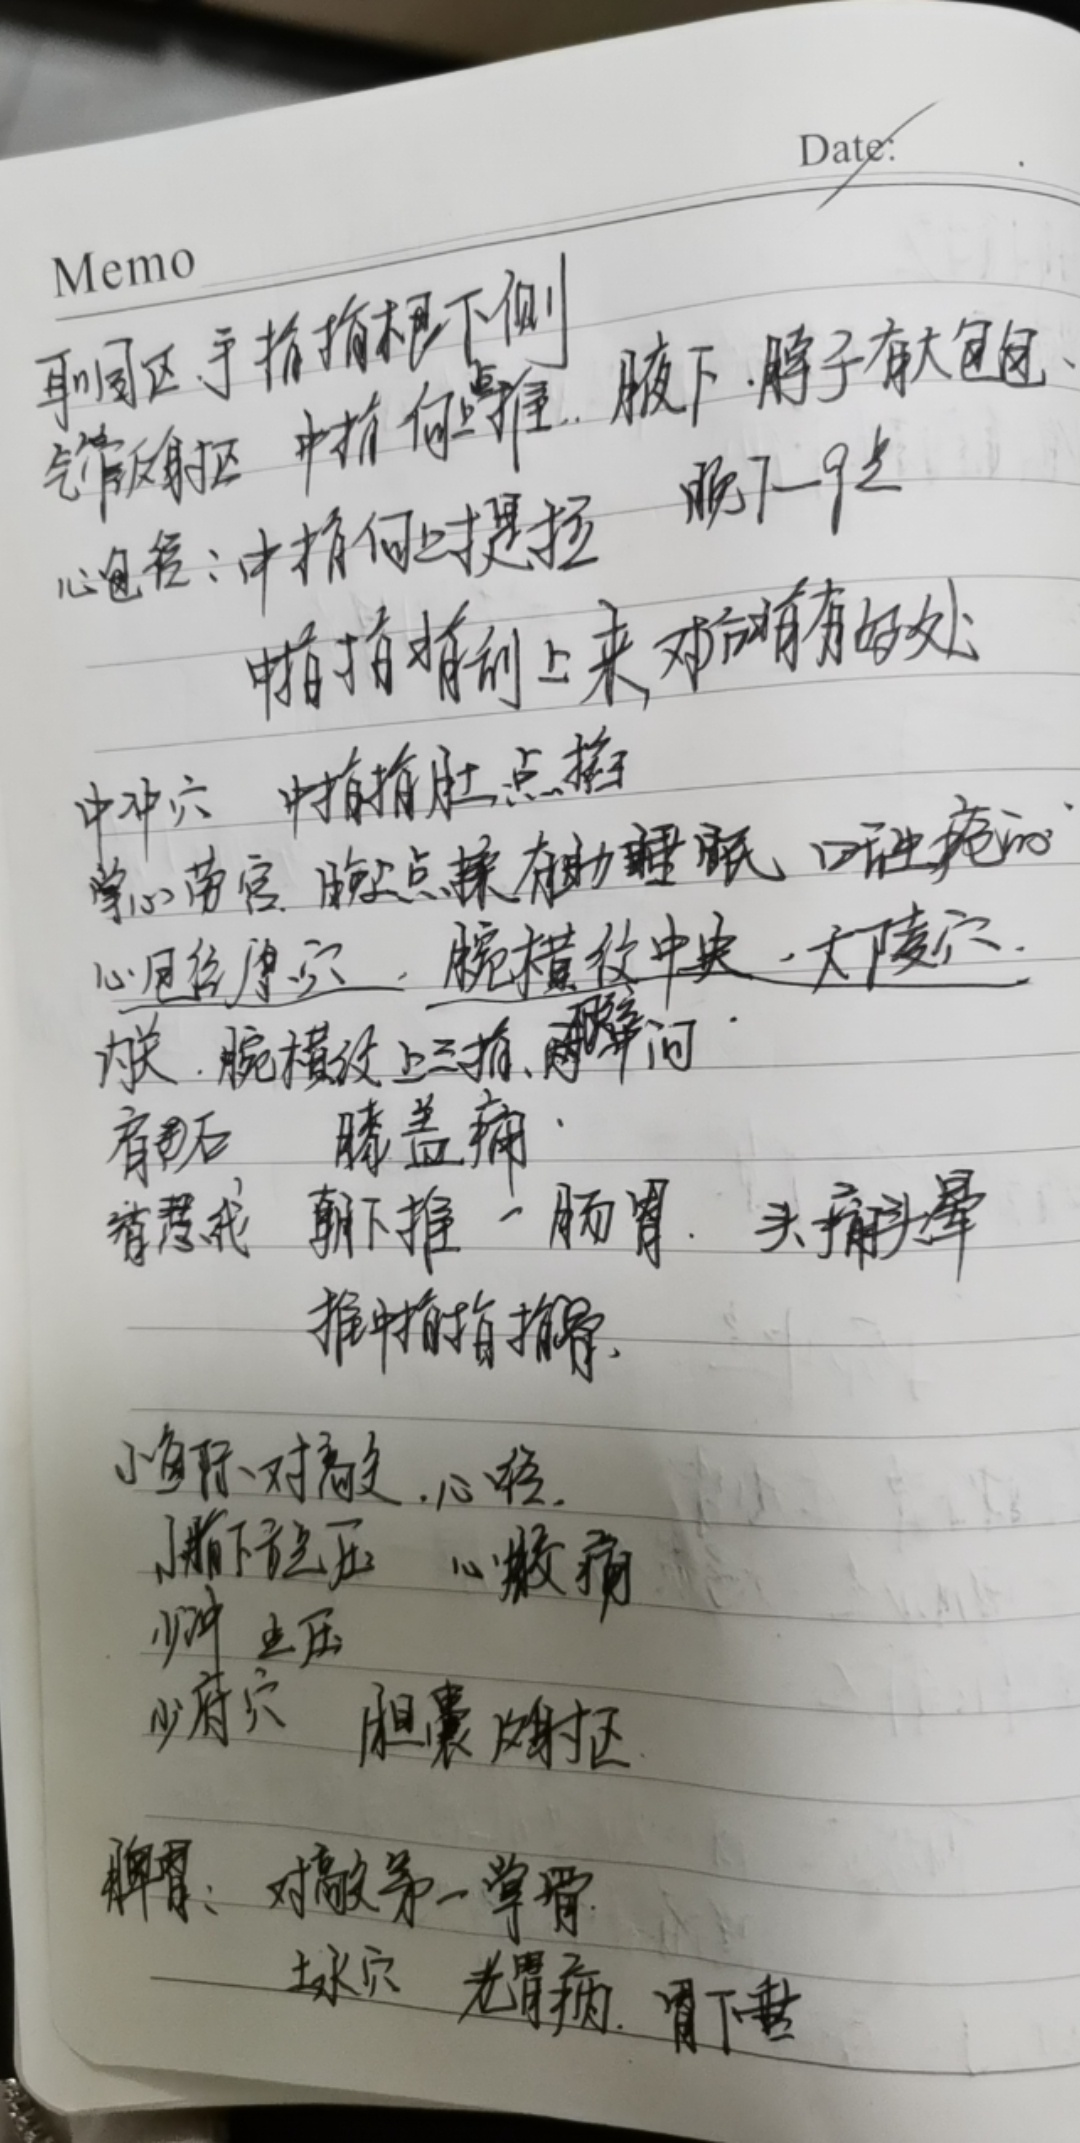 Date:
Memo
耳咽区 手指指根下侧
气管反射区 中指向上推.. 腋下.脖子有大包包、
心包经:中指向上提拉 晚7—9点
中指指背刮上来,对有好处
中冲穴 中指指肚点按
掌心劳宫 晚上点揉有助睡眠 口舌生疮的
心包经原穴. 腕横纹中央.大陵穴.
内关.腕横纹上三指、两臂间
膝盖痛
朝下推-肠胃. 头痛头晕
推中指指掴骨.
小鱼际、对敲.心经.
下方点压 心绞痛
少冲 点压
少府穴 胆囊反射区
脾胃: 对敲第一掌骨.
土水穴 老胃病. 胃下垂